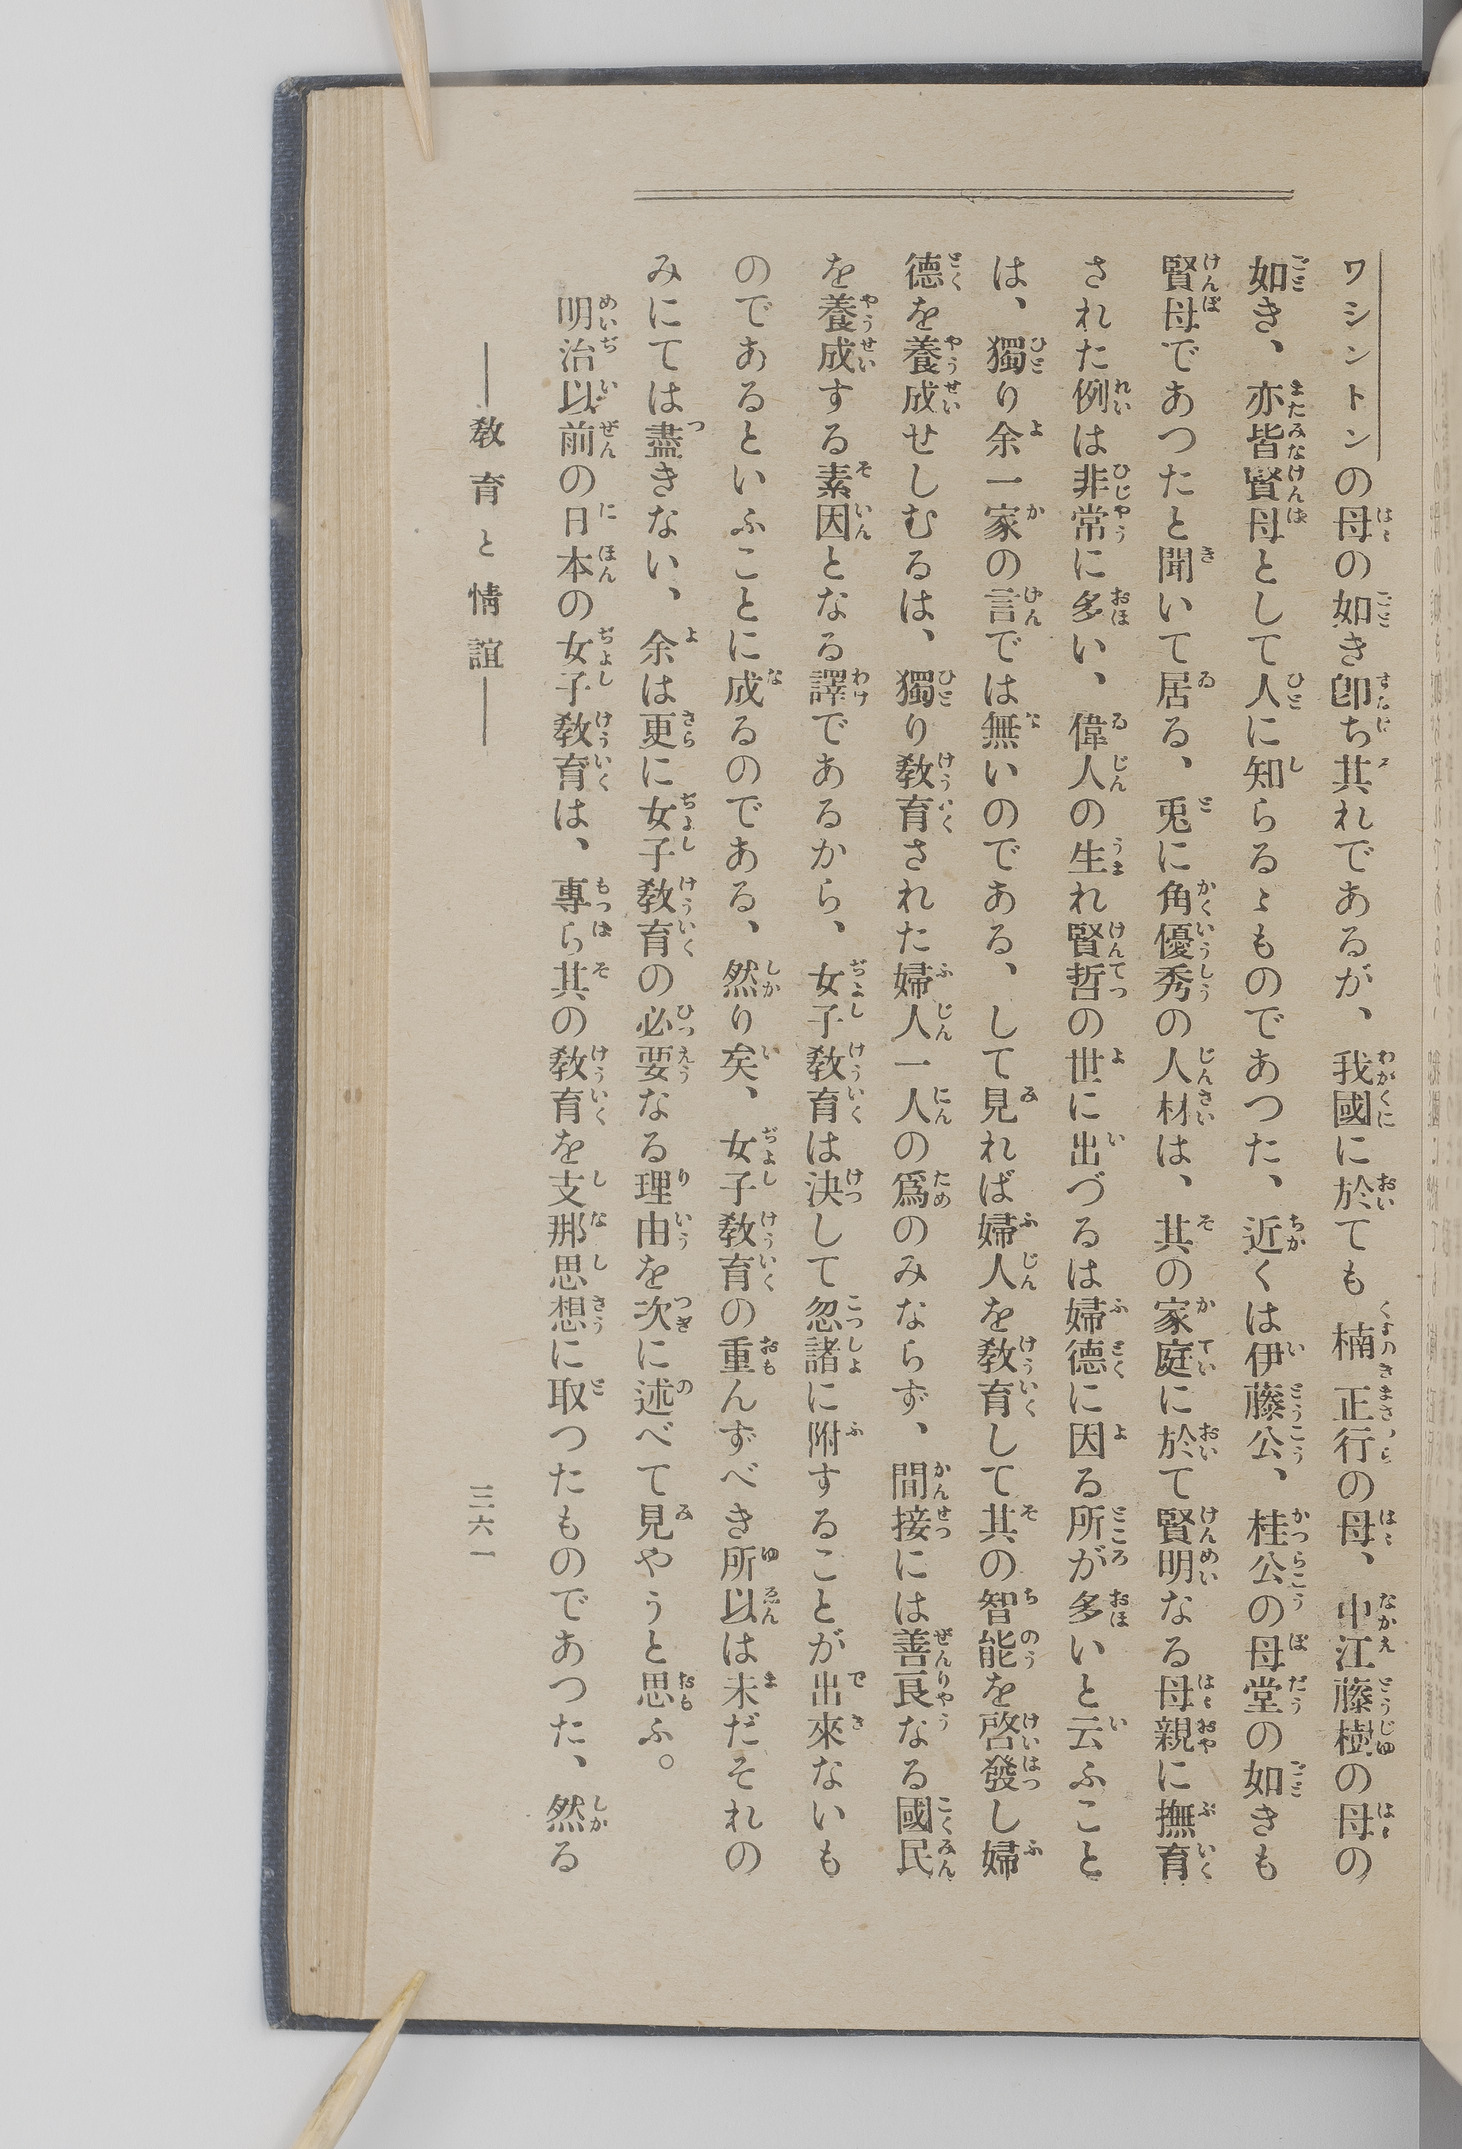 ワシントンの母の如き卽ち其れであるが、我國に於ても楠正行の母、中江藤樹の母の
如き、亦皆賢母として人に知らるゝものであつた、近くは伊藤公、桂公の母堂の如きも
賢母であつたと聞いて居る、兎に角優秀の人材は、其の家庭に於て賢明なる母親に撫育
された例は非常に多い、偉人の生れ賢哲の世に出づるは婦德に因る所が多いと云ふこと
は、獨り余一家の言では無いのである、して見れば婦人を敎育して其の智能を啓發し婦
德を養成せしむるは、獨り敎育された婦人一人の爲のみならず、間接には善良なる國民
を養成する素因となる譯であるから、女子敎育は決して忽諸に附することが出來ないも
のであるといふことに成るのである、然り矣、女子敎育の重んずべき所以は未だそれの
みにては盡きない、余は更に女子敎育の必要なる理由を次に述べて見やうと思ふ。
明治以前の日本の女子敎育は、專ら其の敎育を支那思想に取つたものであつた、然る
敎育と情誼
三六一